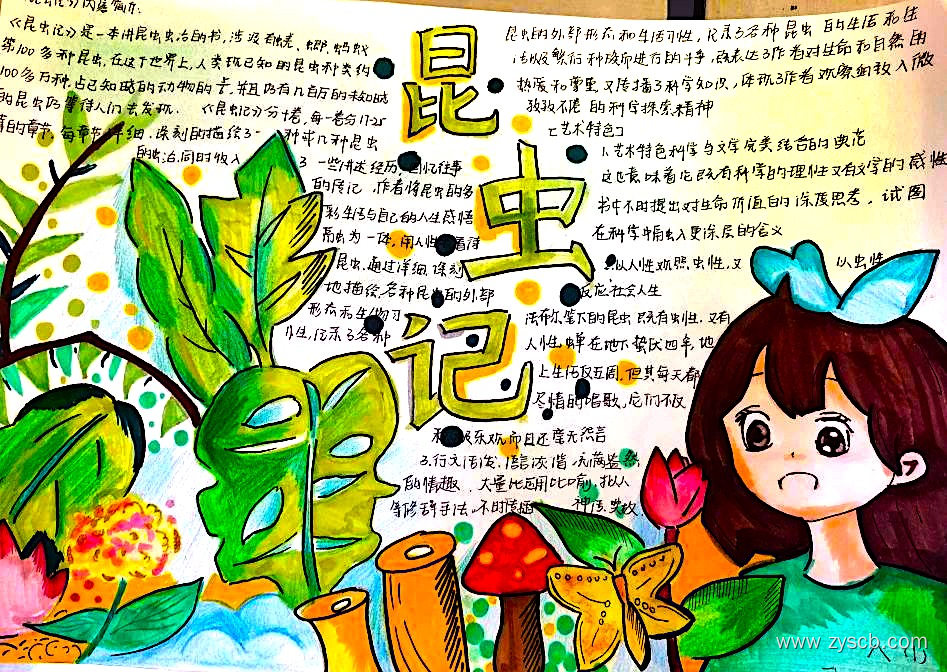 昆虫记
《昆虫记》内容简介:
《昆虫记》是一本讲昆虫生活的书,涉及有蜣螂,蚂蚁
第100多种昆虫,在这个世界上,人类已知的昆虫种类约
100多万种,占已知
动物的
并且仍有几百万的未知
的昆虫仍等待人们去发现.《昆虫记》分十卷,每一卷分17-25
的章节,每章节详细,深刻的描绘了一
种或几种昆虫
的生活同时收入
一些讲述经历,回忆往事
的传记.作者将昆虫的多
彩生活与自己的人生感悟
融为一体,用人性
看待
昆虫,通过详细,深刻
地描绘各种昆虫的外部
形态和生物习
性,记录了各种
昆虫的外部形态和生活习性,记录了各种昆虫的生活和生
活以及繁衍种族而进行的斗争,既表达了作者对生命和自然的
热爱和尊重又传播了科学知识,体现了作者观察细致入微
孜孜不倦的科学探索精神
[艺术特色]
1.艺术特色科学与文学完美结合的典范
这也意味着它既有科学的理性又有文学的感性
书中不时提出对生命价值的深度思考,试图
在科学中融入更深层的含义
2.以人性观照虫性,又
以虫性
反应社会人生
法布尔笔下的昆虫既有虫性,又有
人性,蝉在地下蛰伏四年,地
上生活仅五周,但其每天都
尽情的唱歌,它们不仅
积极乐观而且还毫无怨言
3.行文活泼,语言诙谐,充满盎然
的情趣.大量地运用比喻,拟人
等修辞手法,不时
www.zyscb.com